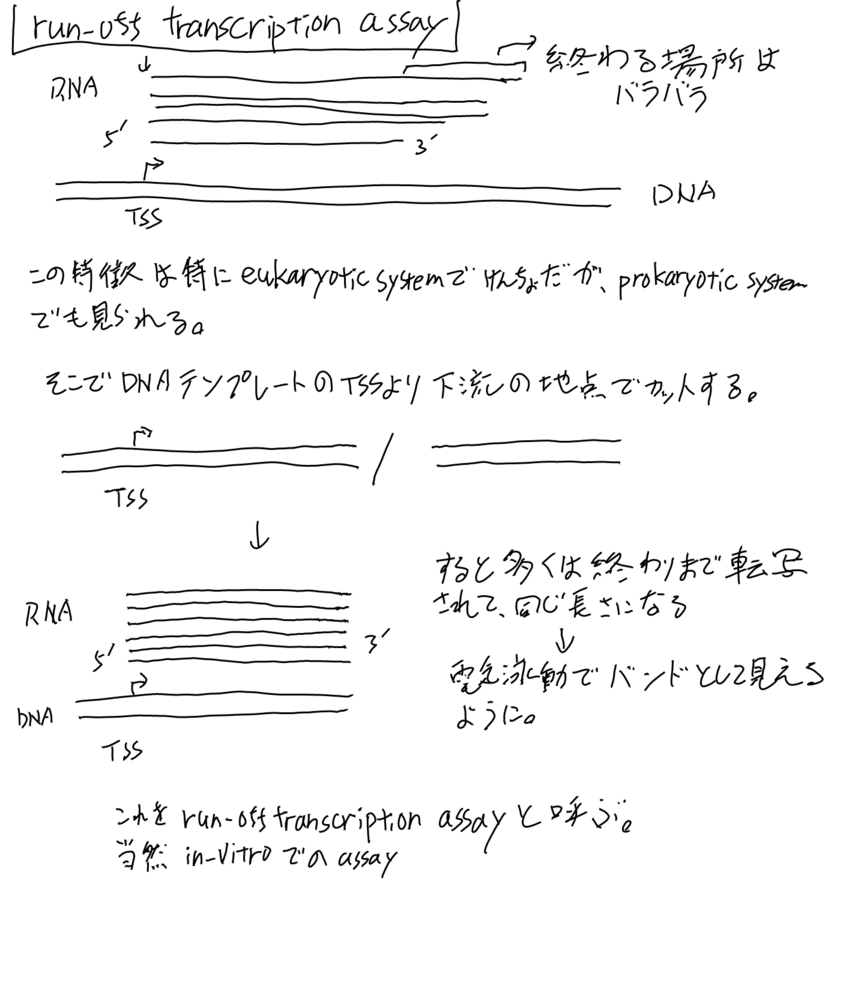 run-off transcription assay
終わる場所は
バラバラ
RNA
5′
3′
DNA
TSS
この特徴は特にeukaryotic systemでけんちょだが、prokaryotic system
でも見られる。
そこでDNAテンプレートのTSSより下流の地点でカットする。
TSS
すると多くは終わりまで転写
されて、同じ長さになる
RNA
5′
3′
電気泳動でバンドとして見える
ように。
DNA
TSS
これをrun-off transcription assayと呼ぶ。
当然in-vitroでのassay